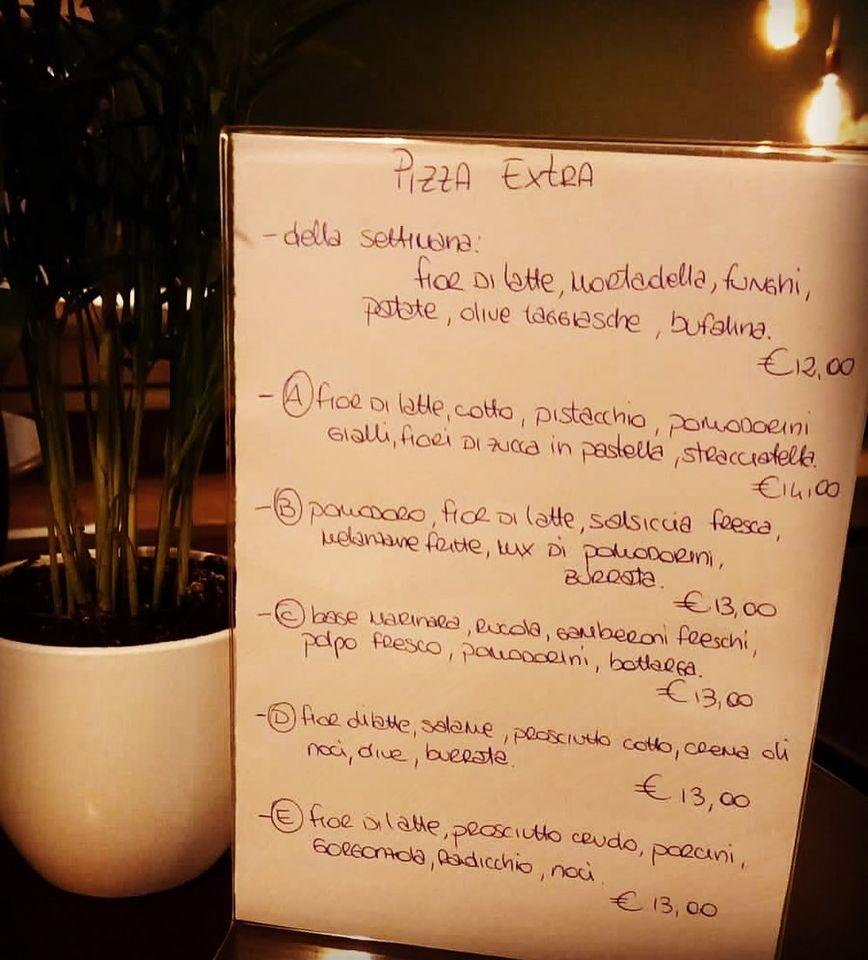 PIZZA EXTRA
- della settimana:
fior di latte, mortadella, funghi,
patate, olive taggiasche, bufalina.
€12,00
- A fior di latte, cotto, pistacchio, pomodorini
gialli, fiori di zucca in pastella, stracciatella.
€14,00
- B pomodoro, fior di latte, salsiccia fresca,
melanzane fritte, mix di pomodorini,
burrata.
€13,00
- C base marinara, rucola, gamberoni freschi,
polpo fresco, pomodorini, bottarga.
€13,00
- D fior di latte, salame, prosciutto cotto, crema di
noci, olive, burrata.
€13,00
- E fior di latte, prosciutto crudo, porcini,
gorgonzola, radicchio, noci.
€13,00